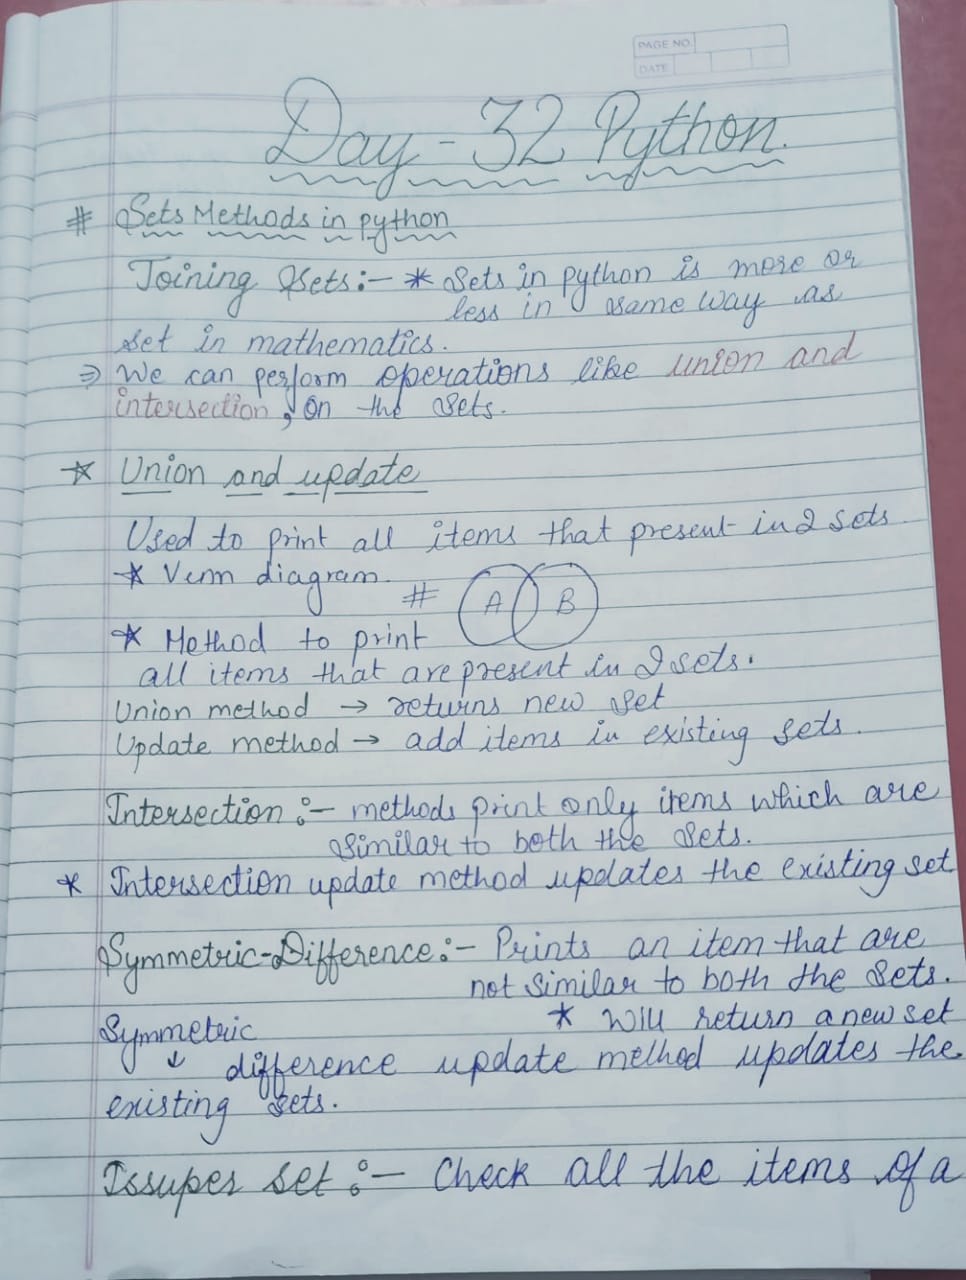 PAGE NO.
DATE
Day - 32 Python.
# Sets Methods in python
Joining Sets :- * Sets in python is more or
less in same way as
set in mathematics.
⇒ We can perform operations like union and
intersection, on the sets.
* Union and update
Used to print all items that present in 2 sets
* Venn diagram.
# A B
* Method to print
all items that are present in 2 sets.
Union method → returns new set
Update method → add items in existing sets.
Intersection :- methods print only items which are
similar to both the sets.
* Intersection update method updates the existing set
Symmetric-Difference :- Prints an item that are
not similar to both the sets.
* Will return a new set
Symmetric
↓ difference update method updates the
existing sets.
Issuper set :- Check all the items of a